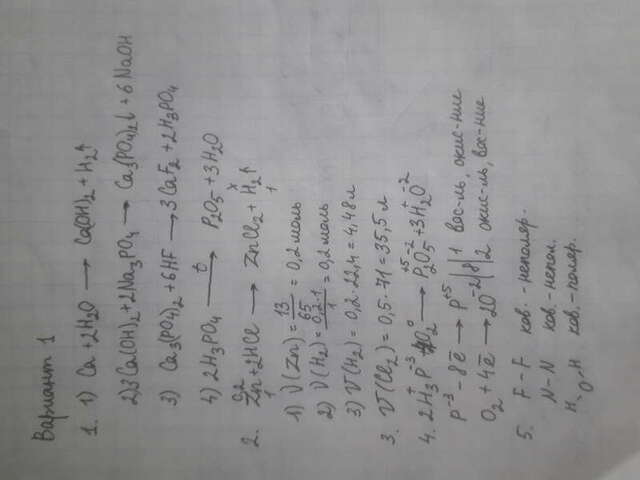 Вариант 1
1. 1) Ca + 2H₂O → Ca(OH)₂ + H₂↑
2) 3Ca(OH)₂ + 2Na₃PO₄ → Ca₃(PO₄)₂↓ + 6NaOH
3) Ca₃(PO₄)₂ + 6HF → 3CaF₂ + 2H₃PO₄
4) 2H₃PO₄ →t P₂O₅ + 3H₂O
0,2 x
2. Zn + 2HCl → ZnCl₂ + H₂↑
1 1
1) ν(Zn) = 13/65 = 0,2 моль
2) ν(H₂) = 0,2·1/1 = 0,2 моль
3) V(H₂) = 0,2·22,4 = 4,48 л
3. V(Cl₂) = 0,5·71 = 35,5 л
4. 2H₃⁺P⁻³ + 4O₂⁰ → P₂⁺⁵O₅⁻² + 3H₂⁺O⁻²
P⁻³ - 8ē → P⁺⁵ | 8 | 1 вос-ль, окис-ние
O₂ + 4ē → 2O⁻² | 2 окис-ль, вос-ние
5. F – F ков. - неполяр.
N – N ков. - непол.
H O H ков. - поляр.